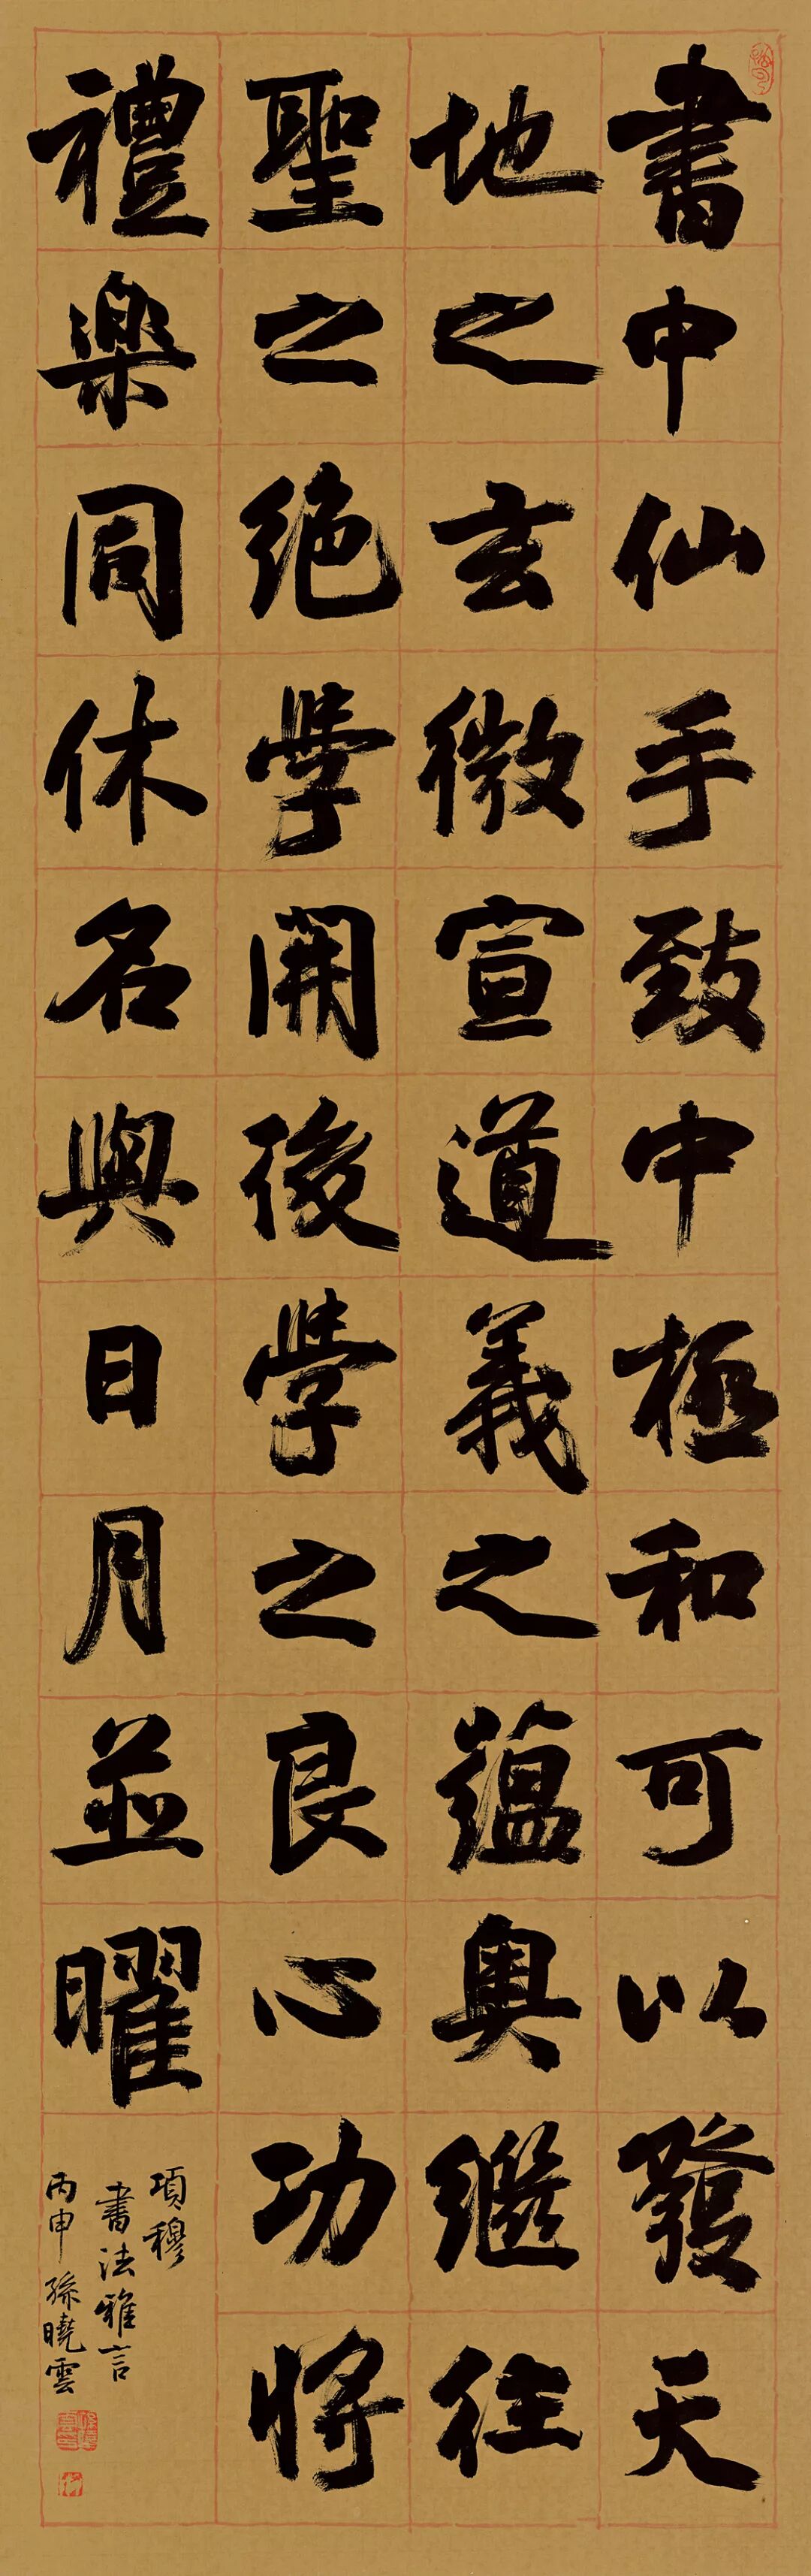 書中仙手致中極和可以發天
地之玄微宣道義之蘊奥繼往
聖之絕學開後學之良心功将
禮樂同休名與日月並曜
項穆
書法雅言
丙申孫曉雲